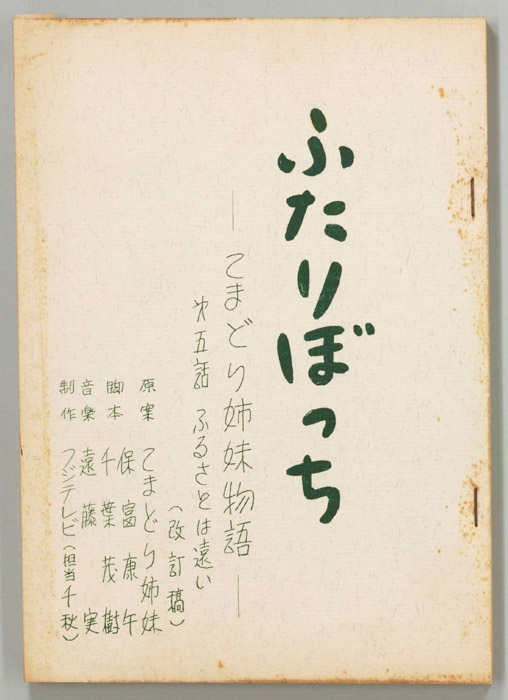 ふたりぼっち
― こまどり姉妹物語 ―
㐧五話 ふるさとは遠い
(改訂稿)
原案 こまどり姉妹
脚本 保富康午
千葉茂樹
音楽 遠藤実
制作 フジテレビ(担当千秋)